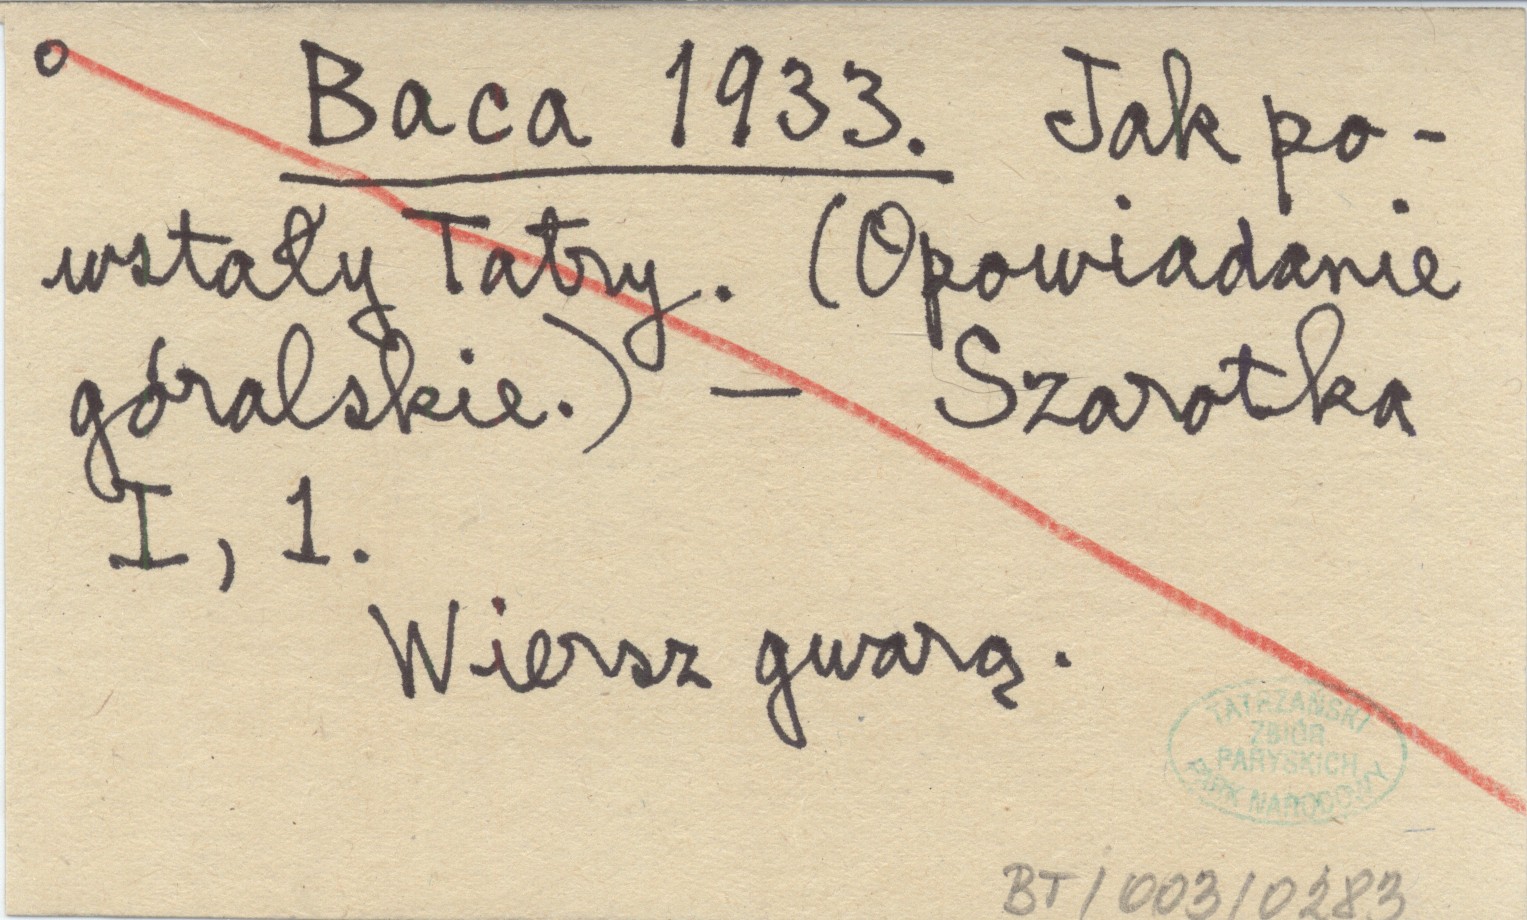 Baca 1933. Jak po-
wstały Tatry. (Opowiadanie
góralskie.) — Szarotka
I, 1.
Wiersz gwarą.
TATRZAŃSKI
ZBIÓR
PARYSKICH
PARK NARODOWY
BT/003/0283